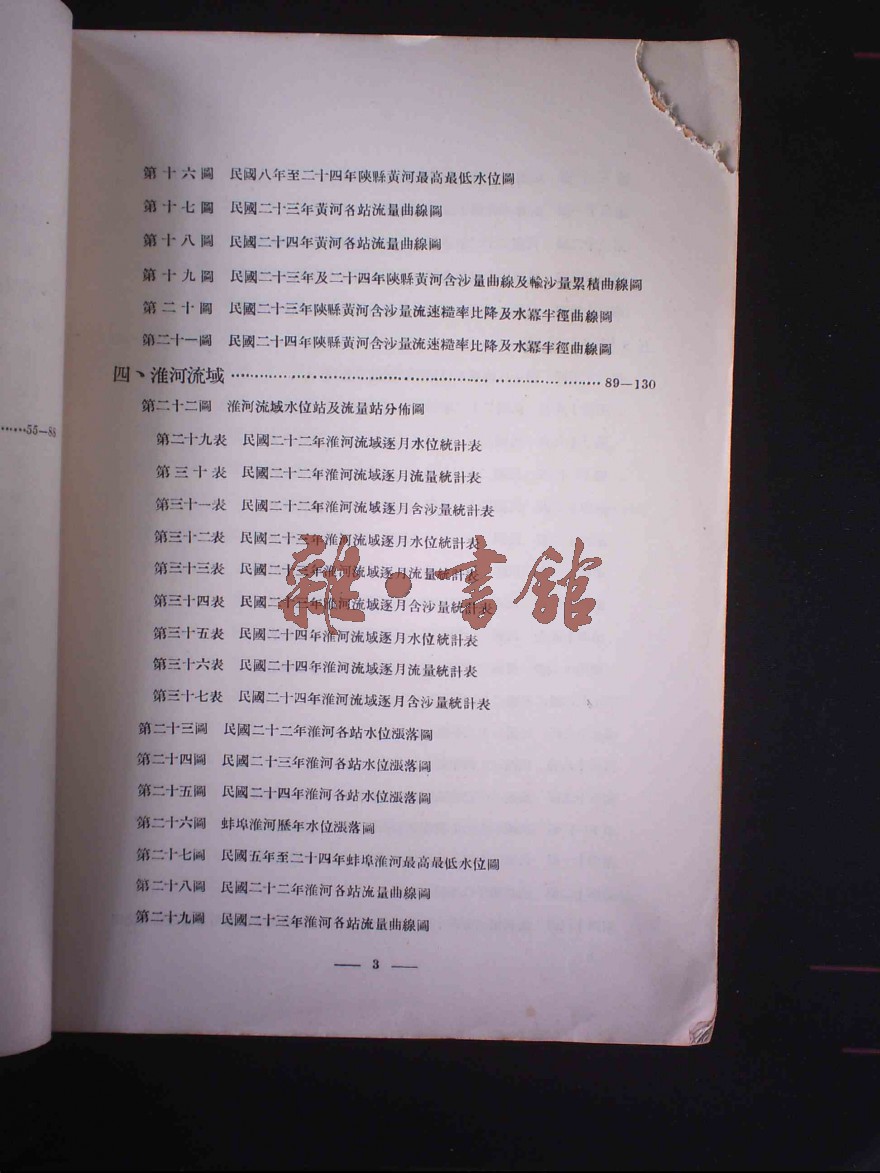 ……55—88
第十六圖 民國八年至二十四年陝縣黃河最高最低水位圖
第十七圖 民國二十三年黃河各站流量曲線圖
第十八圖 民國二十四年黃河各站流量曲線圖
第十九圖 民國二十三年及二十四年陝縣黃河含沙量曲線及輸沙量累積曲線圖
第二十圖 民國二十三年陝縣黃河含沙量流速糙率比降及水冪半徑曲線圖
第二十一圖 民國二十四年陝縣黃河含沙量流速糙率比降及水冪半徑曲線圖
四、淮河流域……89—130
第二十二圖 淮河流域水位站及流量站分佈圖
第二十九表 民國二十二年淮河流域逐月水位統計表
第三十表 民國二十二年淮河流域逐月流量統計表
第三十一表 民國二十二年淮河流域逐月含沙量統計表
第三十二表 民國二十三年淮河流域逐月水位統計表
第三十三表 民國二十三年淮河流域逐月流量統計表
第三十四表 民國二十三年淮河流域逐月含沙量統計表
第三十五表 民國二十四年淮河流域逐月水位統計表
第三十六表 民國二十四年淮河流域逐月流量統計表
第三十七表 民國二十四年淮河流域逐月含沙量統計表
第二十三圖 民國二十二年淮河各站水位漲落圖
第二十四圖 民國二十三年淮河各站水位漲落圖
第二十五圖 民國二十四年淮河各站水位漲落圖
第二十六圖 蚌埠淮河歷年水位漲落圖
第二十七圖 民國五年至二十四年蚌埠淮河最高最低水位圖
第二十八圖 民國二十二年淮河各站流量曲線圖
第二十九圖 民國二十三年淮河各站流量曲線圖
— 3 —
雜·書館